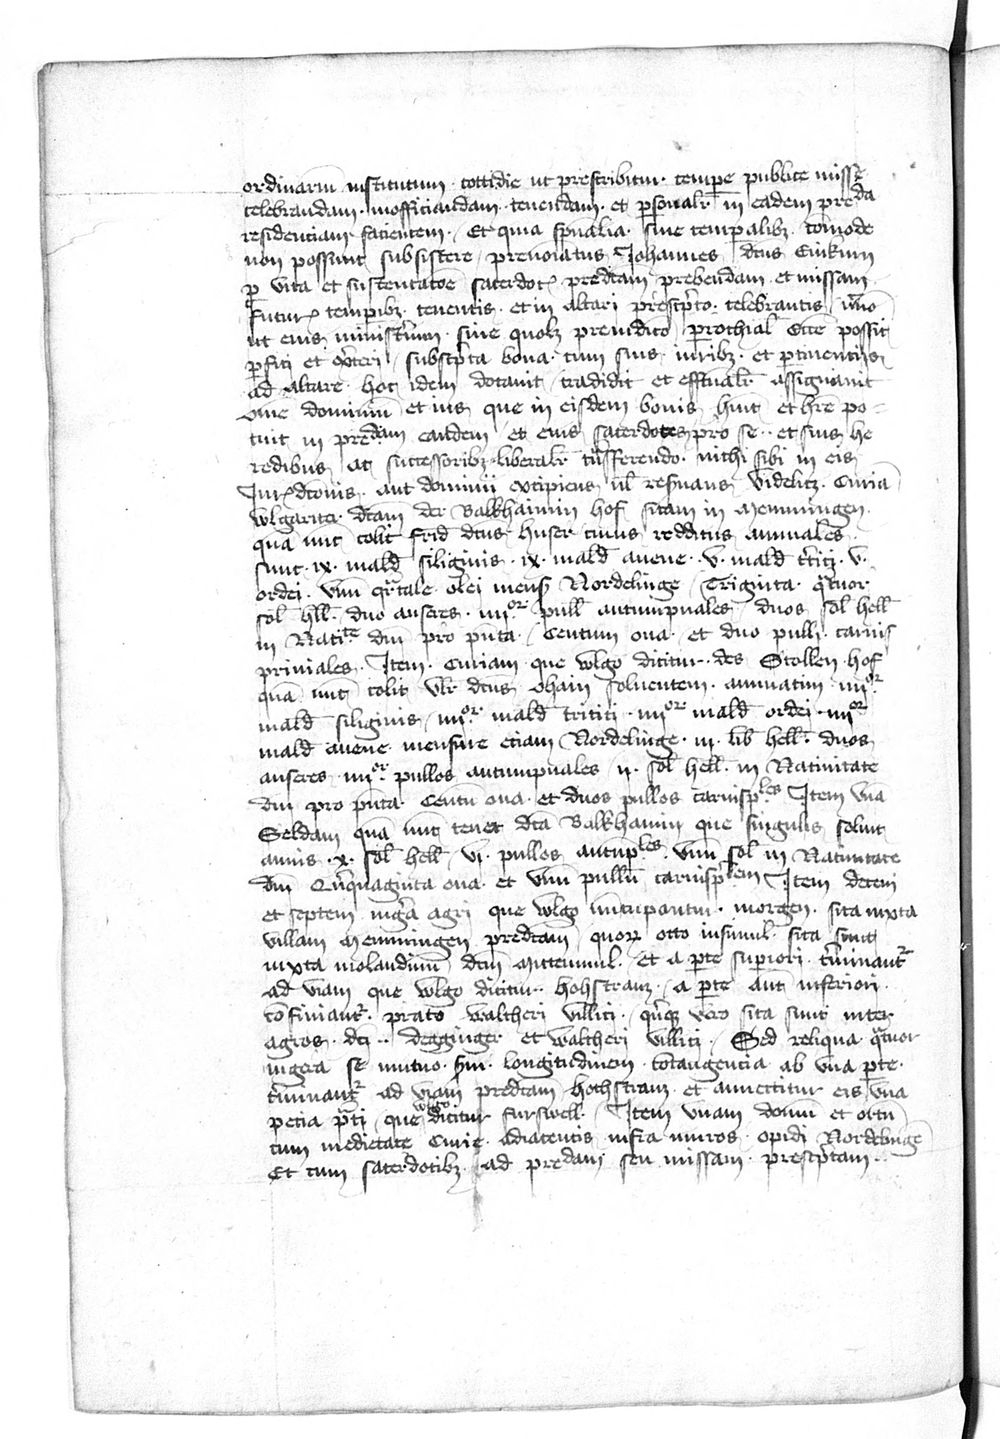 ordinarium institutum · cottidie ut prescribitur · tempore publice misse
celebrandam · inofficiandam · tenendam · et personalr in eadem preda
residenciam facientem / Et quia spiritualia · sine temporalibz comode
non possunt subsistere / prenotatus Johannes dictus Einkurn
p vita et sustentatoe sacerdot predictam prebendam et missam
futur tempibz tenentis et in altari prescripto · celebrantis
ut eius ministerium sine preiudicio parrochial Ecce possit
/ subscripta bona · cum suis iuribz · et pertinentiis
ad altare hoc idem dotauit / tradidit et assignauit
omne dominium et ius que in eisdem bonis hunt et hre po=
tuit in predam eandem et eius sacerdotes pro se ·· et suis he
redibus ac successoribz liberalr transferendo · nichil sibi in eis
Jurisdictionis · aut dominii excipiens ul reseruans videlicz · Curia
wlgariter dictam der Balkhaimin hof sitam in Memmingen
qua nunc colit frid dcus huser cuius redditus annuales
sunt · ix · mald siliginis · ix · mald auene · v · mald tritici · v ·
ordei · vnu qrtale olei mens Nordelinge / Triginta quatuor
sol hll · duo anseres · iiiior pull autumpnales / duos sol hell
in Natite dni pro pnta / Centum oua · et duo pulli carnis
priuiales · Item · Curiam que wlgo dicitur · des Stollen hof
qua nunc colit vlr dcus Ohain soluentem · annuatim iiiior
mald siliginis / iiiior mald tritici · iiiior mald ordei · iiiior
mald auene mensure eciam Nordelinge · iii · lib hell · duos
anseres · iiiior pullos autumpnales / ii · sol hell · in Natiuitate
dni pro pnta · Centu oua · et duos pullos carnisples Item vna
Seldam qua nunc tenet dcta Balkhaimin que singulis soluit
annis · x · sol hell / vi · pullos autuples · vnu sol in Natiuitate
dni Quinquaginta oua · et vnu pullu carnisplem Item decem
et septem iugera agri que wlgo nuncupantur · morgen · sita iuxta
villam Memmingen predictam / quorum otto insimul sita sunt
iuxta molandinum dictum Mittenmul · et a parte superiori · terminantur
ad viam que wlgo dicitur · hohstrauz · a parte aut inferiori ·
cofinant · prato waltheri villici · quinque vero sita sunt inter
agros · dci ·· degginger et waltheri villici / Sed reliqua quatuor
iugera se mutuo · longitudinem contangencia ab vna parte ·
terminant ad viam predictam hochstrauz · et annectitur eis vna
petia prati / que wlgo dicitur furswell / Item vnam domu et ortu
cum medietate Curie adiacentis infra muros opidi Nordelinge
Et cum sacerdotibz ad predam seu missam prescptam ·